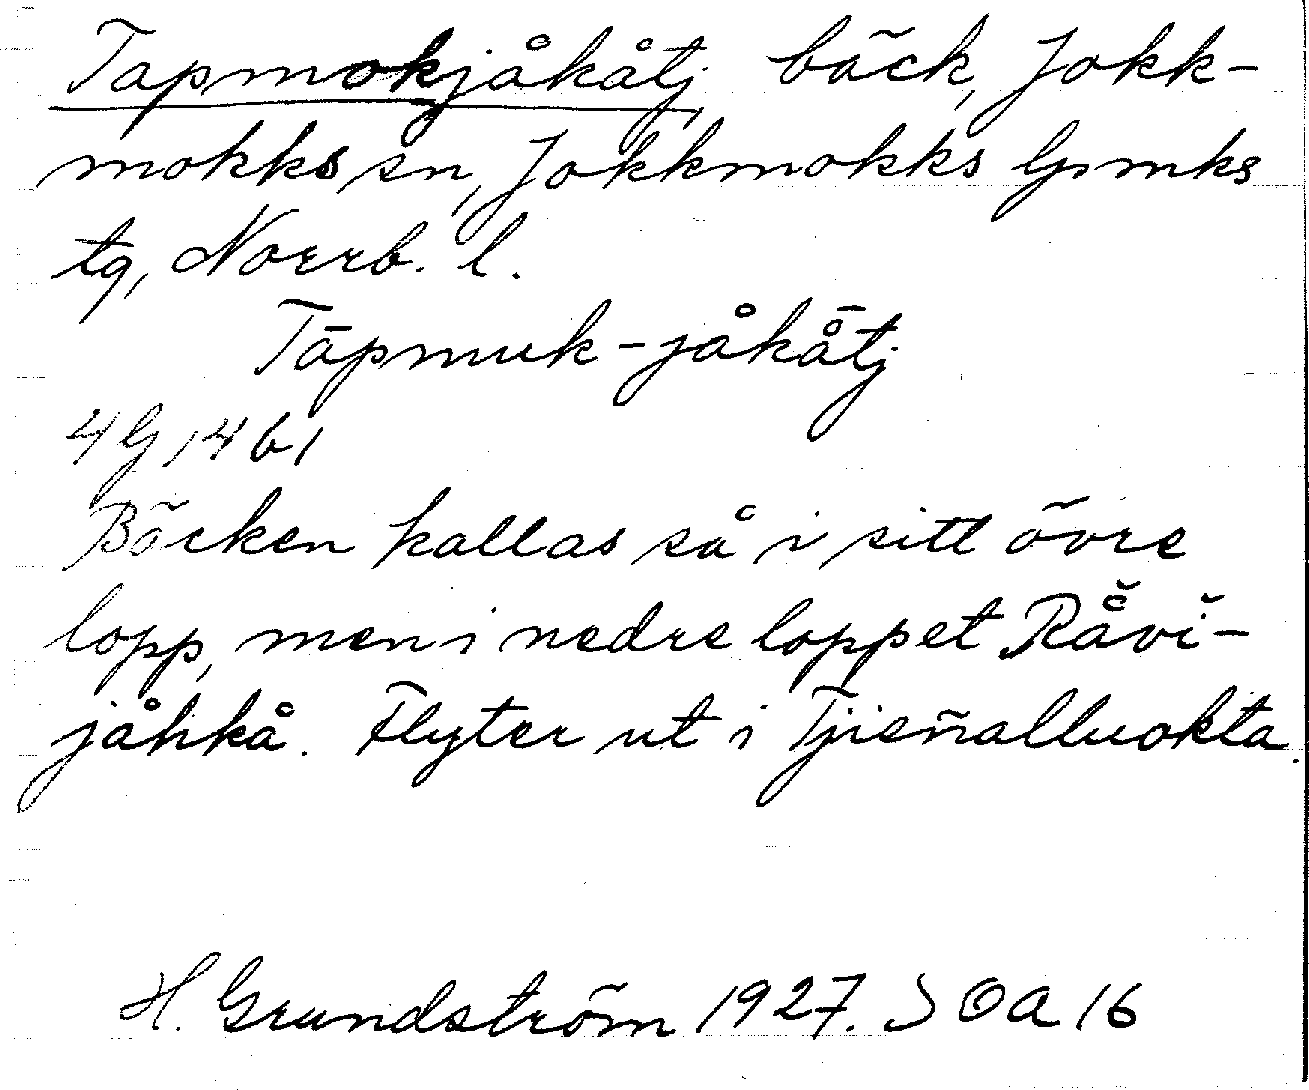 Tapmokjåkåtj, bäck, Jokk-
mokks sn, Jokkmokks lpmks
tg, Norrb. l.
Tāpmuk-jåkå̄tj
4G, 14 b1
Bäcken kallas så i sitt övre
lopp, men i nedre loppet Rå̆vĭ-
jåhkå. Flyter ut i Tjieñalluokta.
H. Grundström 1927. SOA 16